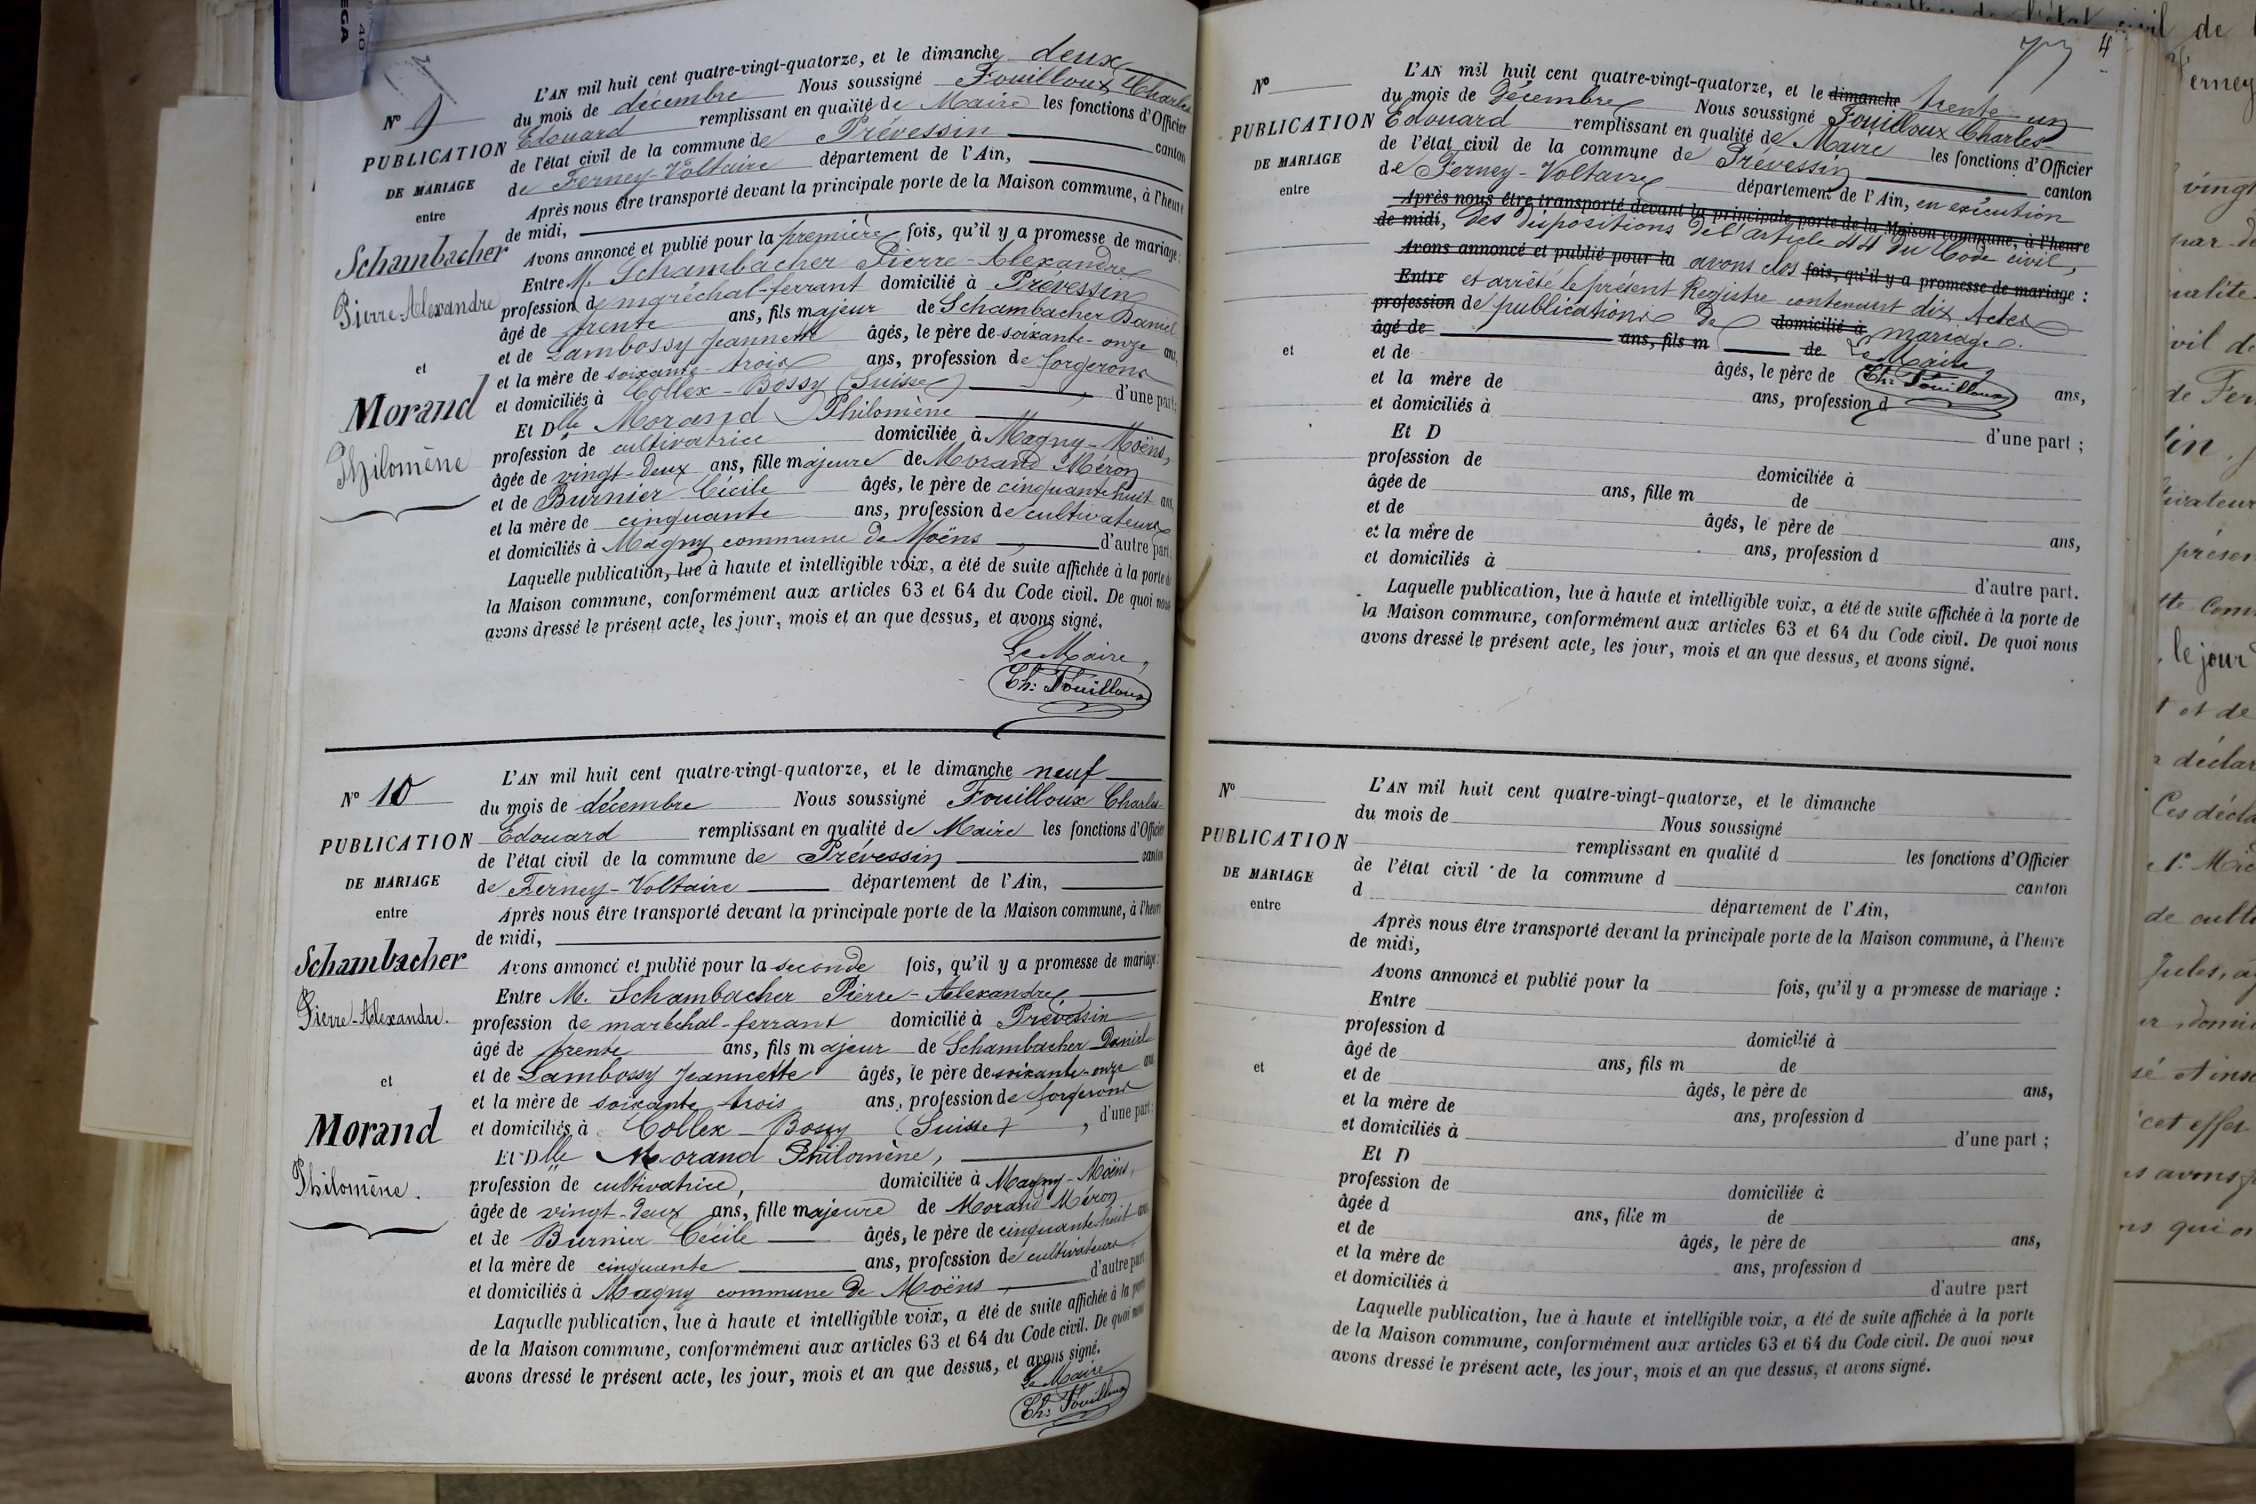 L'AN mil huit cent quatre-vingt-quatorze, et le dimanche deux
du mois de décembre Nous soussigné Fouilloux Charles
N° 9
Edouard remplissant en qualité de Maire les fonctions d'Officier
PUBLICATION
de l'état civil de la commune de Prévessin canton
DE MARIAGE
de Ferney-Voltaire département de l'Ain,
entre
Après nous être transporté devant la principale porte de la Maison commune, à l'heure
de midi,
Schambacher
Avons annoncé et publié pour la première fois, qu'il y a promesse de mariage :
Entre M. Schambacher Pierre-Alexandre
Pierre-Alexandre
profession de maréchal-ferrant domicilié à Prévessin
âgé de trente ans, fils majeur de Schambacher Daniel
et de Lambossy Jeannette âgés, le père de soixante-onze ans,
et
et la mère de soixante-trois ans, profession de forgerons
et domiciliés à Collex-Bossy (Suisse), d'une part;
Morand
Et Dlle Morand Philomène
profession de cultivatrice domiciliée à Magny-Moëns,
Philomène
âgée de vingt-deux ans, fille majeure de Morand Méron
et de Burnier Cécile âgés, le père de cinquante-huit ans,
et la mère de cinquante ans, profession de cultivateurs
et domiciliés à Magny commune de Moëns, d'autre part.
Laquelle publication, lue à haute et intelligible voix, a été de suite affichée à la porte de
la Maison commune, conformément aux articles 63 et 64 du Code civil. De quoi nous
avons dressé le présent acte, les jour, mois et an que dessus, et avons signé.
Le Maire,
Ch: Fouilloux
L'AN mil huit cent quatre-vingt-quatorze, et le dimanche neuf
N° 10
du mois de décembre Nous soussigné Fouilloux Charles
PUBLICATION
Edouard remplissant en qualité de Maire les fonctions d'Officier
de l'état civil de la commune de Prévessin canton
DE MARIAGE
de Ferney-Voltaire département de l'Ain,
entre
Après nous être transporté devant la principale porte de la Maison commune, à l'heure
de midi,
Schambacher
Avons annoncé et publié pour la seconde fois, qu'il y a promesse de mariage :
Entre M. Schambacher Pierre-Alexandre
Pierre-Alexandre.
profession de maréchal-ferrant domicilié à Prévessin
âgé de trente ans, fils majeur de Schambacher Daniel
et
et de Lambossy Jeannette âgés, le père de soixante-onze ans
et la mère de soixante trois ans, profession de forgerons
Morand
et domiciliés à Collex-Bossy (Suisse), d'une part;
Et Dlle Morand Philomène,
Philomène.
profession de cultivatrice, domiciliée à Magny-Moëns,
âgée de vingt-deux ans, fille majeure de Morand Méron
et de Burnier Cécile âgés, le père de cinquante-huit ans
et la mère de cinquante ans, profession de cultivateurs
et domiciliés à Magny commune de Moëns, d'autre part
Laquelle publication, lue à haute et intelligible voix, a été de suite affichée à la porte
de la Maison commune, conformément aux articles 63 et 64 du Code civil. De quoi nous
avons dressé le présent acte, les jour, mois et an que dessus, et avons signé.
Le Maire
Ch: Fouilloux
4
L'AN mil huit cent quatre-vingt-quatorze, et le dimanche trente-un
N°
du mois de Décembre Nous soussigné Fouilloux Charles
PUBLICATION
Edouard remplissant en qualité de Maire les fonctions d'Officier
de l'état civil de la commune de Prévessin canton
DE MARIAGE
de Ferney-Voltaire département de l'Ain, en exécution
entre
Après nous être transporté devant la principale porte de la Maison commune, à l'heure
de midi, des dispositions de l'article 44 du Code civil,
Avons annoncé et publié pour la avons clos fois, qu'il y a promesse de mariage :
Entre et arrêté le présent Registre contenant dix Actes
profession de publications de domicilié à mariage.
âgé de ans, fils m de Le Maire,
et
et de âgés, le père de Ch: Fouilloux ans,
et la mère de ans, profession d
et domiciliés à d'une part ;
Et D
profession de domiciliée à
âgée de ans, fille m de
et de âgés, le père de ans,
et la mère de ans, profession d
et domiciliés à d'autre part.
Laquelle publication, lue à haute et intelligible voix, a été de suite affichée à la porte de
la Maison commune, conformément aux articles 63 et 64 du Code civil. De quoi nous
avons dressé le présent acte, les jour, mois et an que dessus, et avons signé.
L'AN mil huit cent quatre-vingt-quatorze, et le dimanche
N°
du mois de Nous soussigné
PUBLICATION
remplissant en qualité d les fonctions d'Officier
de l'état civil de la commune d canton
DE MARIAGE
d département de l'Ain,
entre
Après nous être transporté devant la principale porte de la Maison commune, à l'heure
de midi,
Avons annoncé et publié pour la fois, qu'il y a promesse de mariage :
Entre
profession d domicilié à
âgé de ans, fils m de
et
et de âgés, le père de ans,
et la mère de ans, profession d
et domiciliés à d'une part ;
Et D
profession de domiciliée à
âgée d ans, fille m de
et de âgés, le père de ans,
et la mère de ans, profession d
et domiciliés à d'autre part
Laquelle publication, lue à haute et intelligible voix, a été de suite affichée à la porte
de la Maison commune, conformément aux articles 63 et 64 du Code civil. De quoi nous
avons dressé le présent acte, les jour, mois et an que dessus, et avons signé.